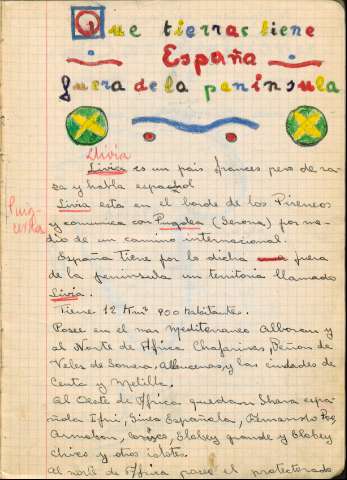 Que tierras tiene
España
fuera de la península
Llivia
Livia es un pais frances pero de ra-
za y habla español
Livia esta en el borde de los Pirineos
Puig-
cerda
y comunica con Pugcela (Gerona) por me-
dio de un camino internacional.
España tiene por lo dicha fuera
de la peninsula un territorio llamado
Livia.
Tiene 12 Km² 900 habitantes.
Posee en el mar Mediterraneo Alboran y
al Norte de Africa Chafarinas, Peñon de
Velez de Gomera, Alhucemas, y las ciudades de
Ceuta y Melilla.
Al Oeste de Africa quedan Shara espa-
ñola Ifni, Ginea Española, Fernando Poo,
Annobon, Corisco, Elobey grande y Elobey
chico y otros islotes.
Al norte de Africa posee el protectorado